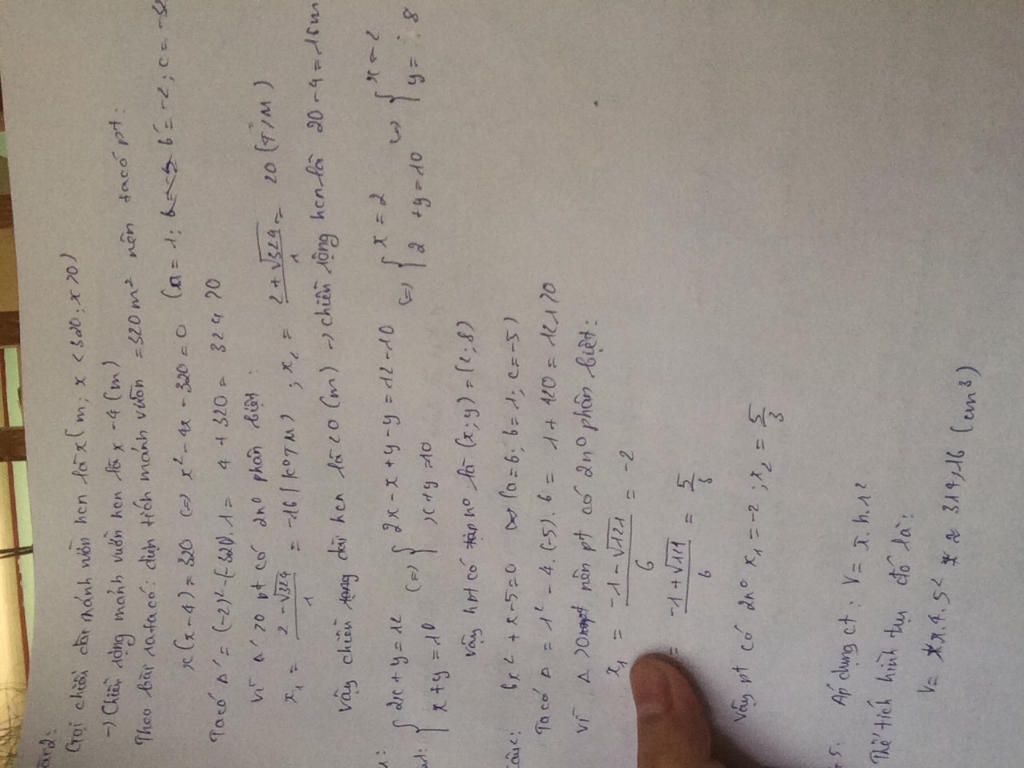 Gọi chiều dài mảnh vườn hcn là x (m; x < 320; x > 0)
→ Chiều rộng mảnh vườn hcn là x - 4 (m)
Theo bài ra ta có: diện tích mảnh vườn = 320m² nên ta có pt:
x(x-4) = 320 <=> x² - 4x - 320 = 0 (a = 1; b' = -2; c = -32
Ta có Δ' = (-2)² - (-320).1 = 4 + 320 = 324 > 0
Vì Δ' > 0 pt có 2 nº phân biệt:
x₁ = 2 - √324 / 1 = -16 (KoTM) ; x₂ = 2 + √324 / 1 = 20 (T/M)
Vậy chiều dài hcn là 20 (m) → chiều rộng hcn là 20 - 4 = 16m
{ 2x + y = 12 (=) { 2x - x + y - y = 12 - 10 (=) { x = 2 <=> { x = 2
x + y = 10 x + y = 10 2 + y = 10 y = 8
Vậy hpt có tập nº là (x; y) = (2; 8)
x² + x - 5 = 0 (a = 6; b = 1; c = -5)
Ta có Δ = 1² - 4.(-5).6 = 1 + 120 = 121 > 0
Vì Δ > 0 nên pt có 2 nº phân biệt:
x₁ = -1 - √121 / 6 = -2
= -1 + √121 / 6 = 5/3
Vậy pt có 2 nº x₁ = -2 ; x₂ = 5/3
5. Áp dụng ct: V = π.h.r²
Thể tích hình trụ đó là:
V = π.4.5² ≈ 314,16 (cm³)